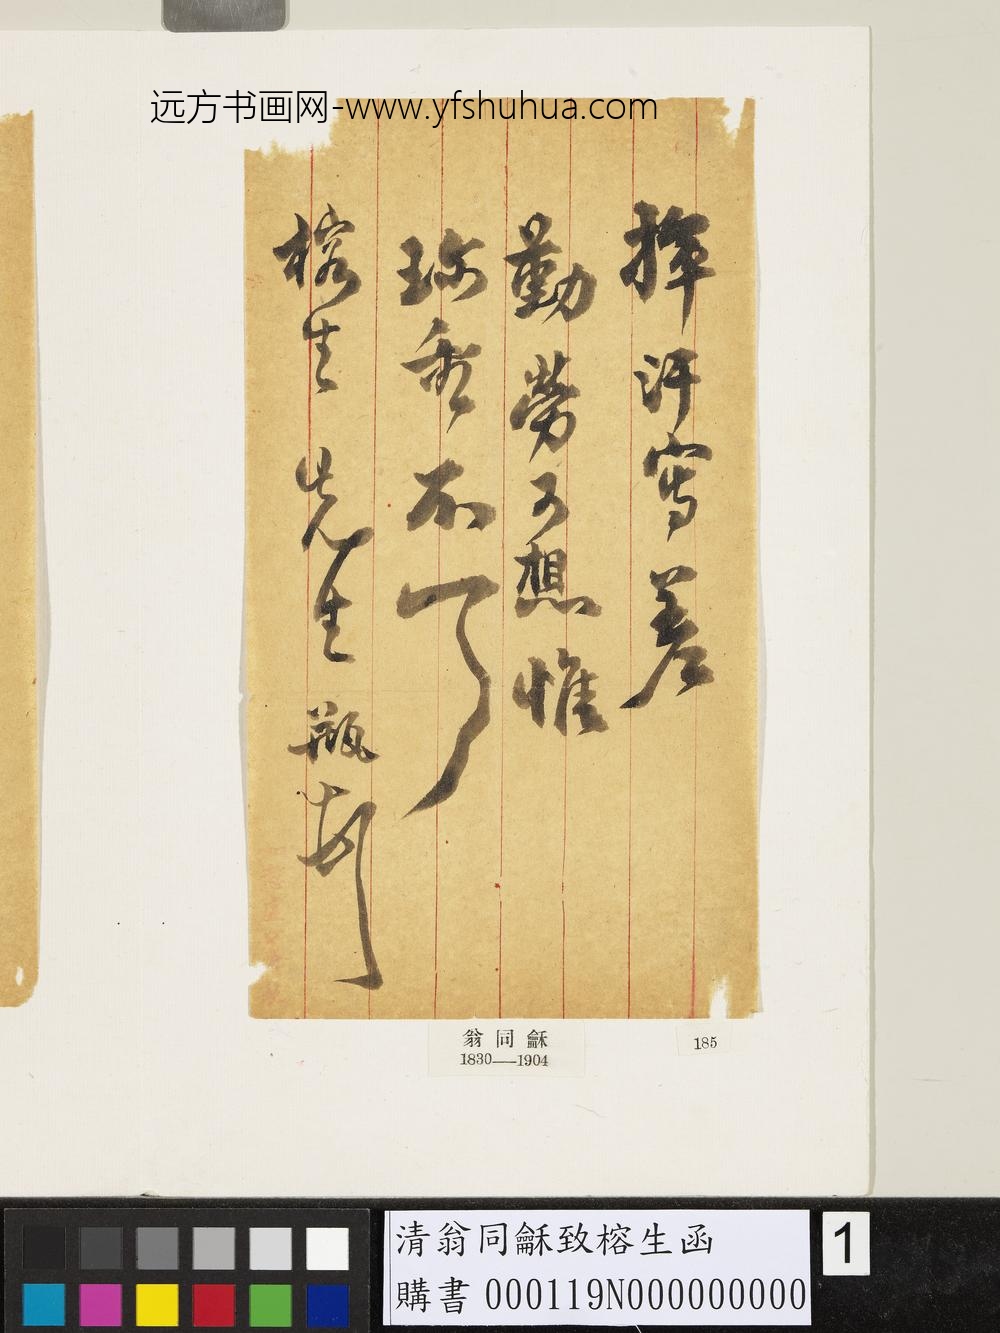 远方书画网-www.yfshuhua.com
揮汗寫
勤勞可想惟
珍重不
榕生先生 瓶
翁同龢
1830—1904
185
清翁同龢致榕生函
購書 000119N000000000
1